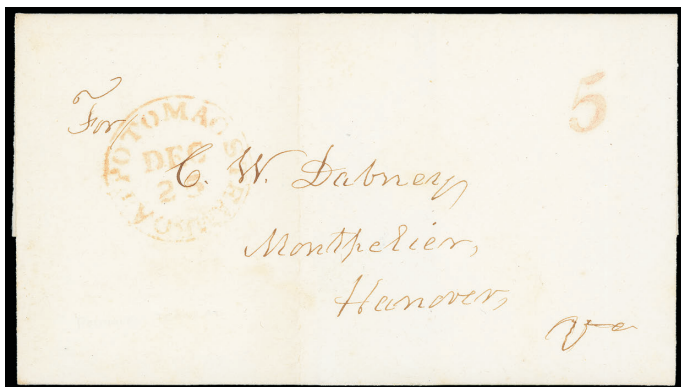 5
For
POTOMAC STEAMBOAT
DEC
C. W. Dabney,
Montpelier,
Hanover,
Va